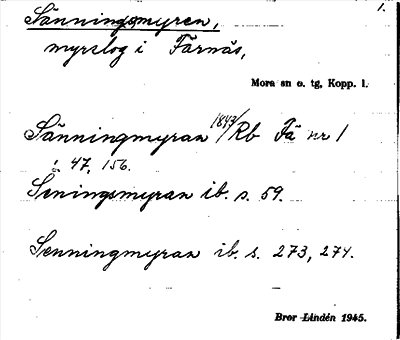 1.
Sänningsmyren,
myrslog i Färnäs,
Mora sn o. tg, Kopp. l.
Sänningmyran 1843/Rb Fä nr 1
s. 47, 156.
Seningsmyran ib. s. 59.
Senningmyran ib. s. 273, 274.
Bror Lindén 1945.